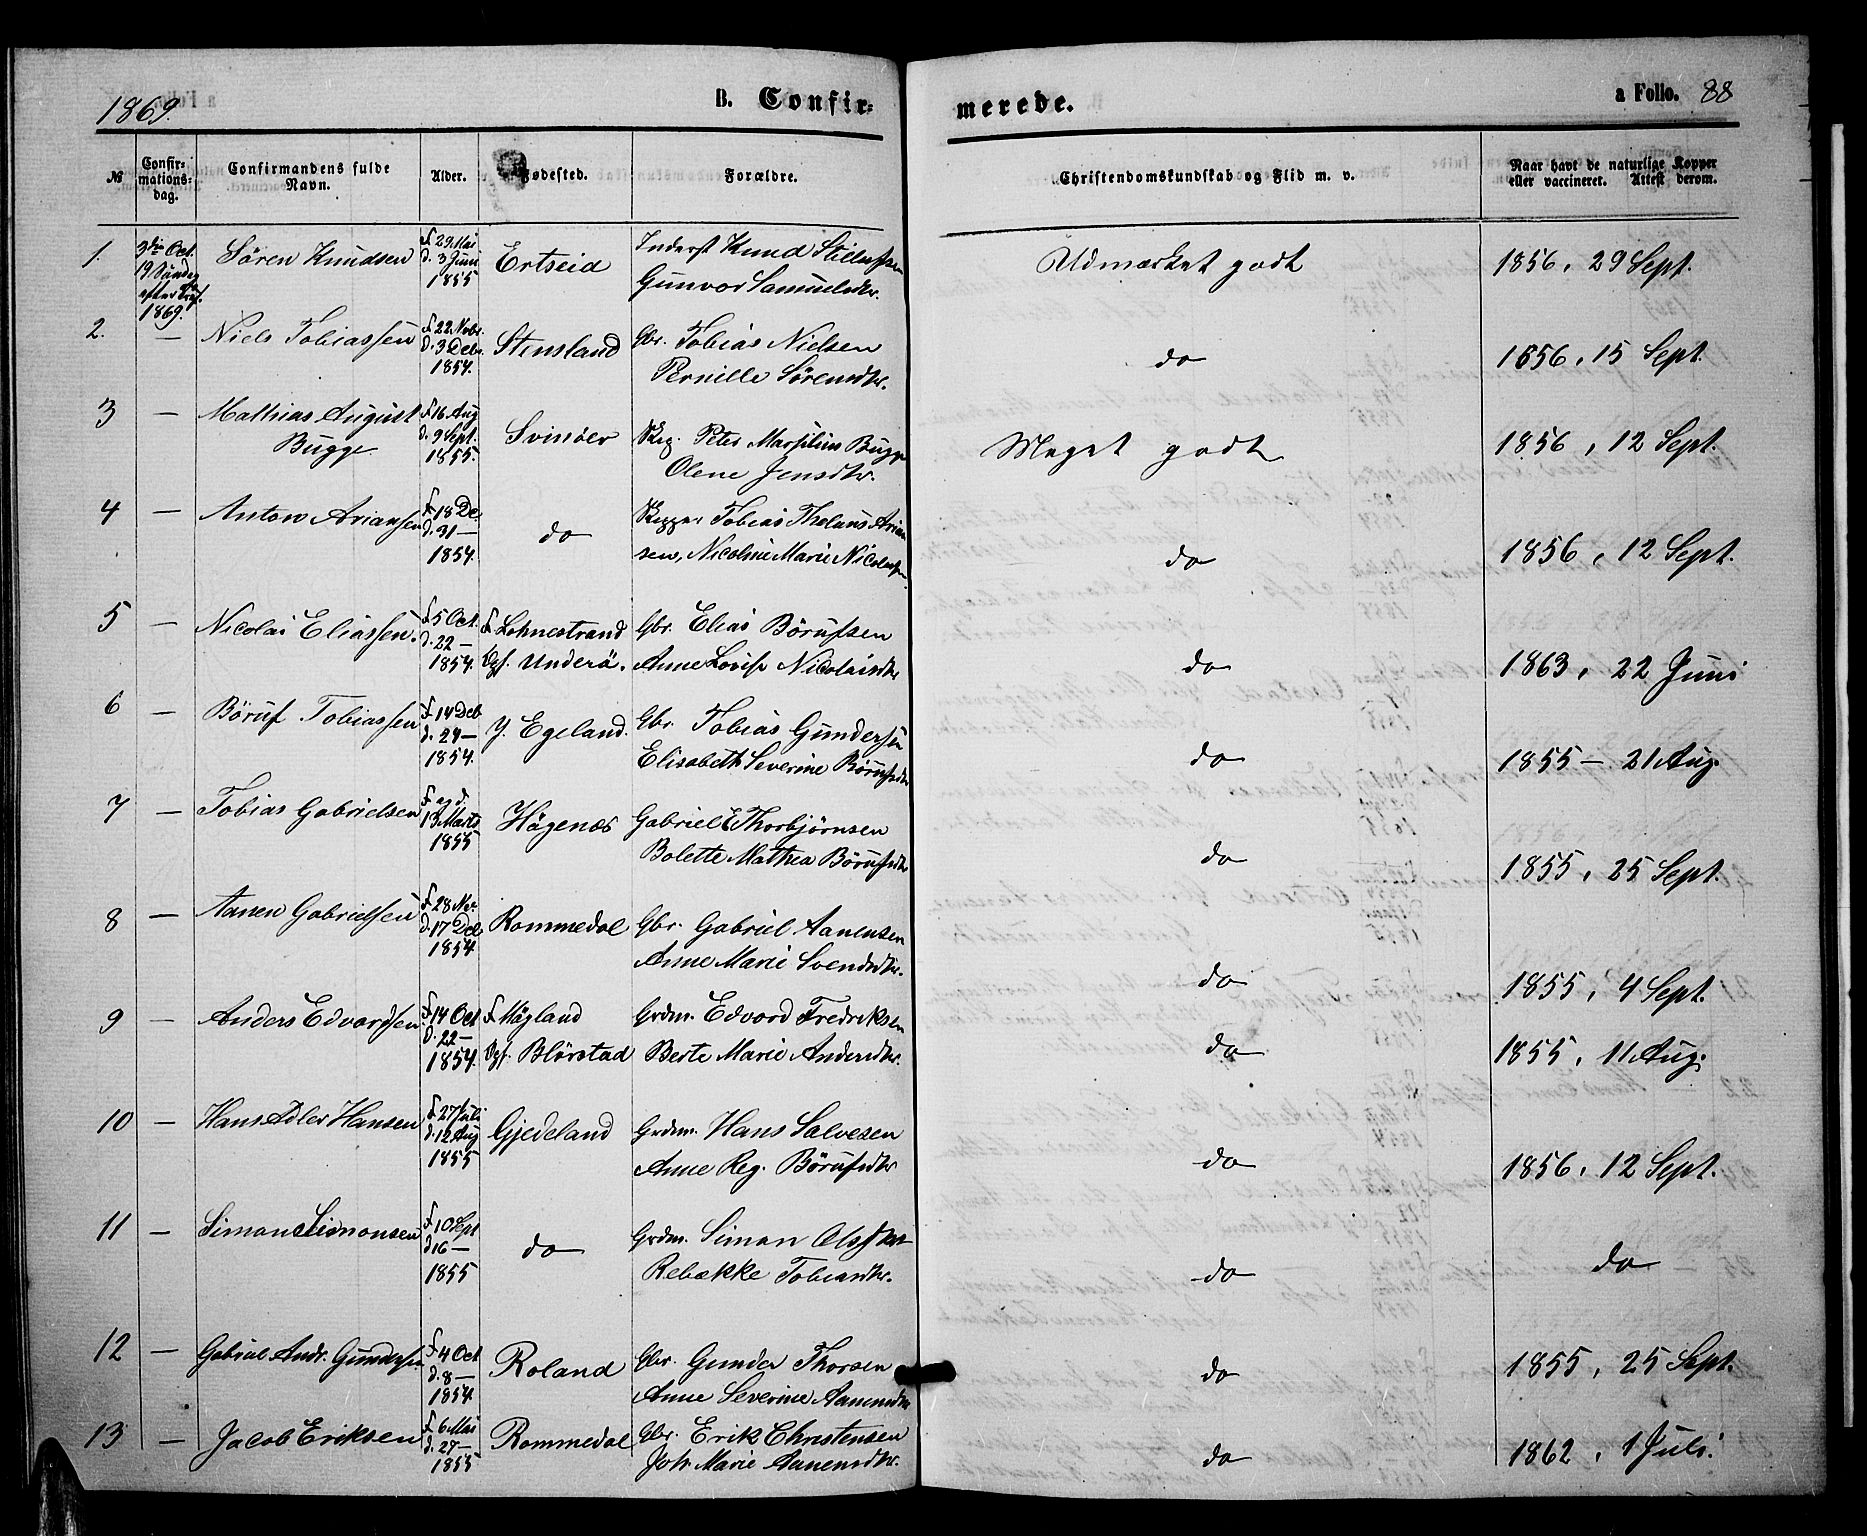 1869.
B. Confir-
merede.
a Folio. 88
№
Confir-
mations-
dag.
Confirmandens fulde
Navn.
Alder.
Fødested.
Forældre.
Christendomskundskab og Flid m. v.
Naar havt de naturlige Kopper
eller vaccineret. Attest derom.
1. 3die Oct.
19 Søndag
efter Tref.
1869.
Søren Knudsen
f 29 Mai
d. 3 Juni
1855
Ertseid
Inderst Knud
Gunvor Samuelsdtr.
Udmærket godt
1856, 29 Sept.
2. — Niels Tobiassen
f 22 Nvbr.
d. 3 Debr.
1854.
Stensland
Gbr. Tobias Nielsen
Pernille Sørensdtr.
do
1856, 15 Sept.
3 — Mathias August
Bugge
f 16 Aug
d. 9 Sept.
1855.
Svinøer
Skip. Peter Marsilius Bugge
Olene Jensdtr.
Meget godt
1856, 12 Sept.
4 — Anton Ariansen
f 18 De.
d. 31 —
1854.
do
Skipper Tobias Arian
sen, Nicoline Marie
do
1856, 12 Sept.
5 — Nicolai Eliassen.
f 5 Oct.
d. 22 —
1854.
f Lohnestrand
Opf. Underø.
Gbr. Elias Børufsen
Anne Lovise Nicolaisdtr
do
1863, 22 Juni
6 — Børuf Tobiassen
f 14 Deb
d. 24 —
1854.
Y. Egeland.
Gbr. Tobias Gundersen
Elisabeth Severine Børufsdtr
do
1855 — 21 Aug.
7 — Tobias Gabrielsen
f og d.
13 Marts
1855
Høgenæs
Gabriel E Thorbjørnsen
Bolette Mathea Børufsdtr
do
1855, 25 Sept.
8 — Aanen Gabrielsen
f 28 Nv.
d. 17 Deb
1854
Rommedal
Gbr. Gabriel Aanensen
Anne Marie Svendsdtr.
do
1855, 4 Sept.
9 — Anders Edvardsen
f 14 Oct
d. 22 —
1854.
f Møgland
Opf. Blørstad
Grdm. Edvard Fredriksen
Berte Marie Andersdtr.
do
1855, 11 Aug.
10 — Hans Adler Hansen
f 27 Juli
d. 12 Aug
1855
Gjedeland
Grdm. Hans Salvesen
Anne Reg. Børufsdtr
do
1856, 12 Sept.
11 — Simon Simonsen
f 10 Sept
d 16 —
1855
do
Grdm. Simon
Rebække Tobiasdtr.
do
do
12 — Gabriel Andr. Gundersen
f 4 Oct
d. 8 —
1854.
Roland
Gbr. Gunder Thorsen
Anne Severine Aanensdtr
do
1855, 25 Sept.
13 — Jacob Eriksen
f 6 Mai
d. 27 —
1855
Rommedal
Gbr. Erik Christensen
Joh. Marie Aanensdtr.
do
1862, 1 Juli.